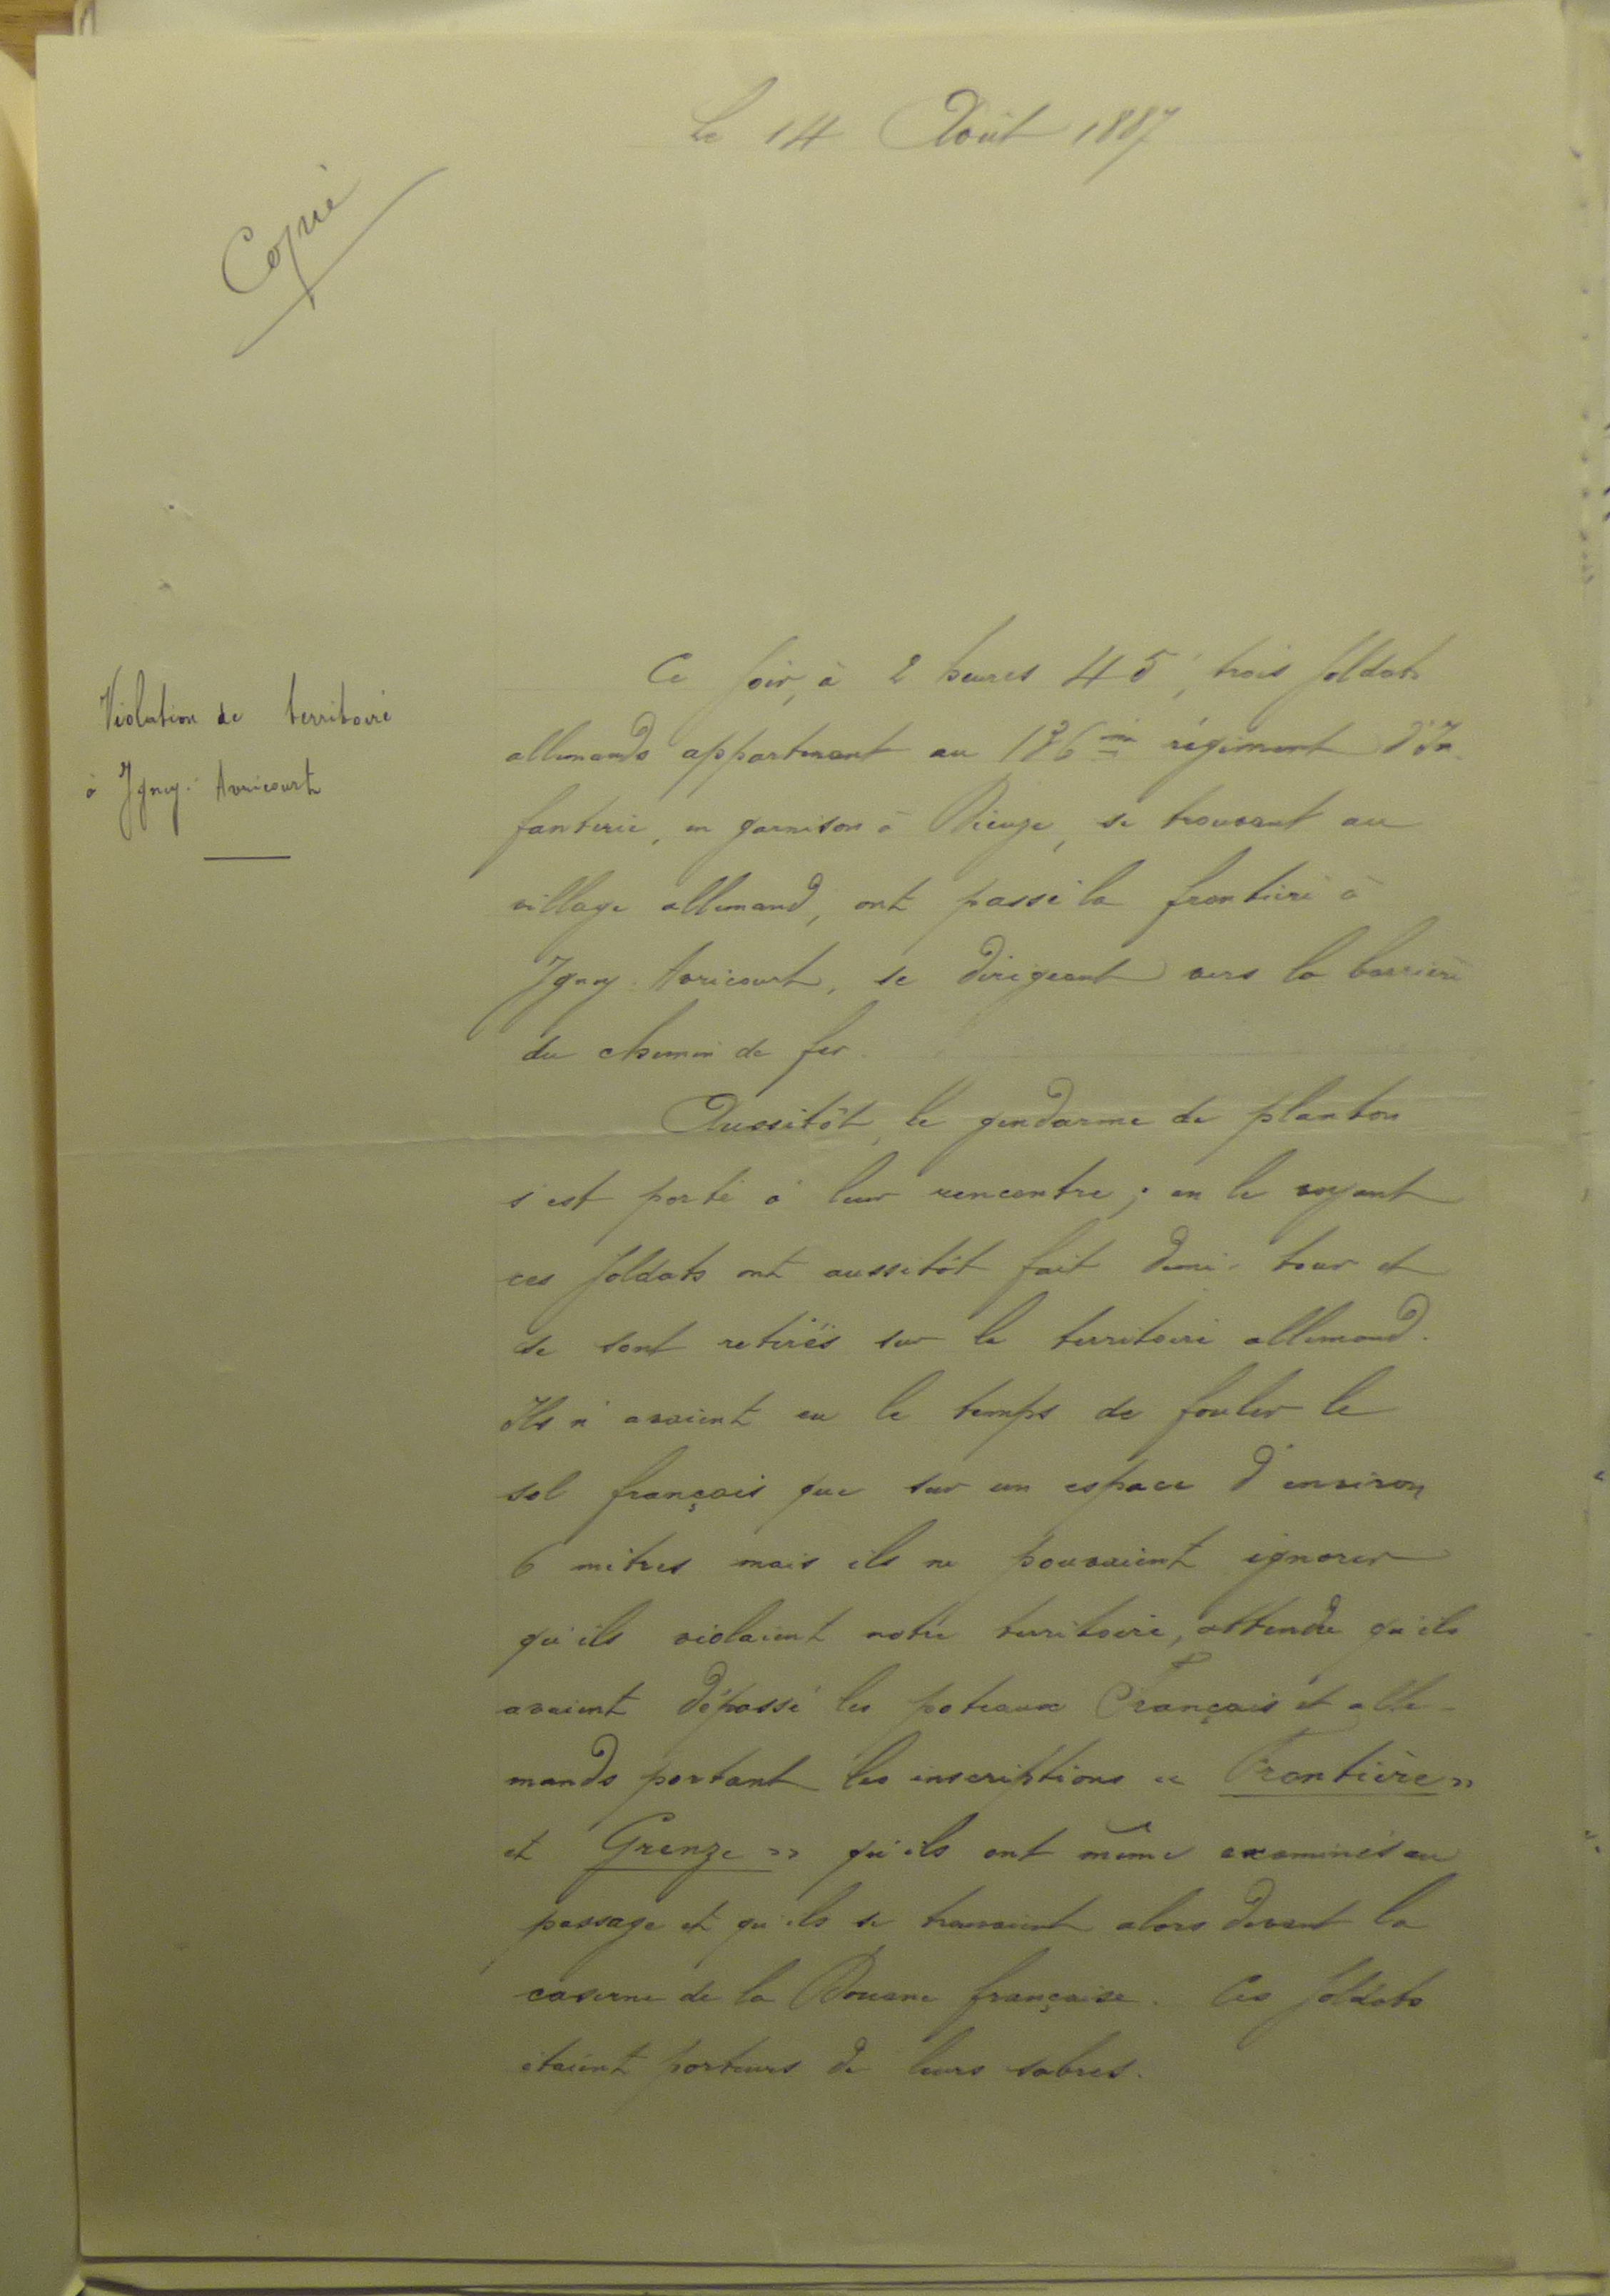 Le 14 Août 1887
Copie
Violution de territoire
à Igney-Avricourt
Ce soir, à 2 heures 45', trois soldats
allemands appartenant au régiment d'In-
fanterie, en garnison à Dieuze, se trouvant au
village allemand, ont passé la frontière à
Igney-Avricourt, se dirigeant vers la barrière
du chemin de fer.
Aussitôt, le gendarme de planton
s'est porté à leur rencontre; en le voyant
ces soldats ont aussitôt fait demi-tour et
se sont retirés sur le territoire allemand.
Ils n'avaient eu le temps de fouler le
sol français que sur un espace d'environ
6 mètres mais ils ne pouvaient ignorer
qu'ils violaient notre territoire, attendu qu'ils
avaient dépassé les poteaux Français et alle-
mands portant les inscriptions « Frontière »
et Grenze » qu'ils ont même examinés au
passage et qu'ils se trouvaient alors devant la
caserne de la Douane française. Ces soldats
étaient porteurs de leurs sabres.